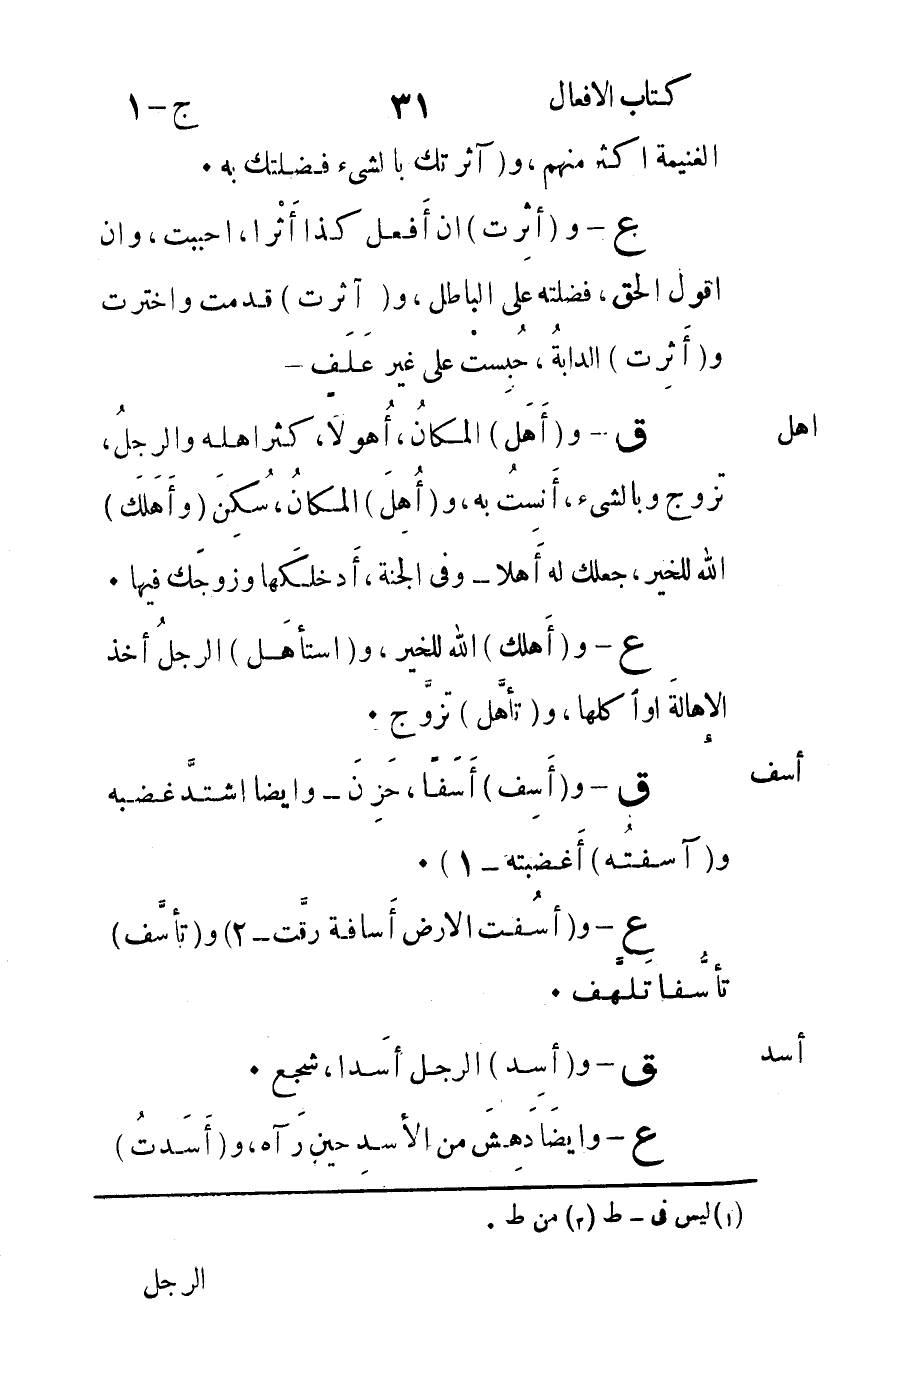 كتاب الافعال ٣١ ج – ١
الغنيمة اكثر منهم ، و( آثرتك بالشىء فضلتك به ٠
ع – و ( أثِرت ) ان أَفعل كذا أَثْرا ، احببت ، وان
اقول الحق ، فضلته على الباطل ، و( آثرت ) قدمت واخترت
و ( أُثِرت ) الدابةُ ، حُبِستْ على غير عَلَفٍ –
اهل
ق – و ( أَهَل ) المكانُ ، أُهولًا ، كثر اهله والرجلُ ،
تزوج وبالشىء ، أَنِستُ به ، و ( أُهِلَ ) المكانُ ، سُكِنَ ( وأَهَلَكَ )
الله للخير ، جعلك له أَهلا – وفى الجنة ، أَدخلكها وزوجَك فيها ٠
ع – و ( أَهلك ) الله للخير ، و ( استأهَل ) الرجلُ أخذ
الإهالةَ او أكلها ، و ( تأهَّل ) تزوَّج ٠
أسف
ق – و ( أَسِف ) أَسَفًا ، حَزِنَ – وايضا اشتدَّ غضبه
و ( آسفتُه ) أَغضبته – ١ ) ٠
ع – و ( أسُفت الارض أَسافة رقَّت – ٢ ) و ( تأسَّف )
تأسُّفا تلهَّف ٠
أسد
ق – و ( أسِد ) الرجل أسَدا ، شجع ٠
ع – وايضًا دَهِشَ من الأَسدِ حين رَآه ، و ( أَسَدتُ )
(١) ليس فى – ط (٢) من ط ٠
الرجل